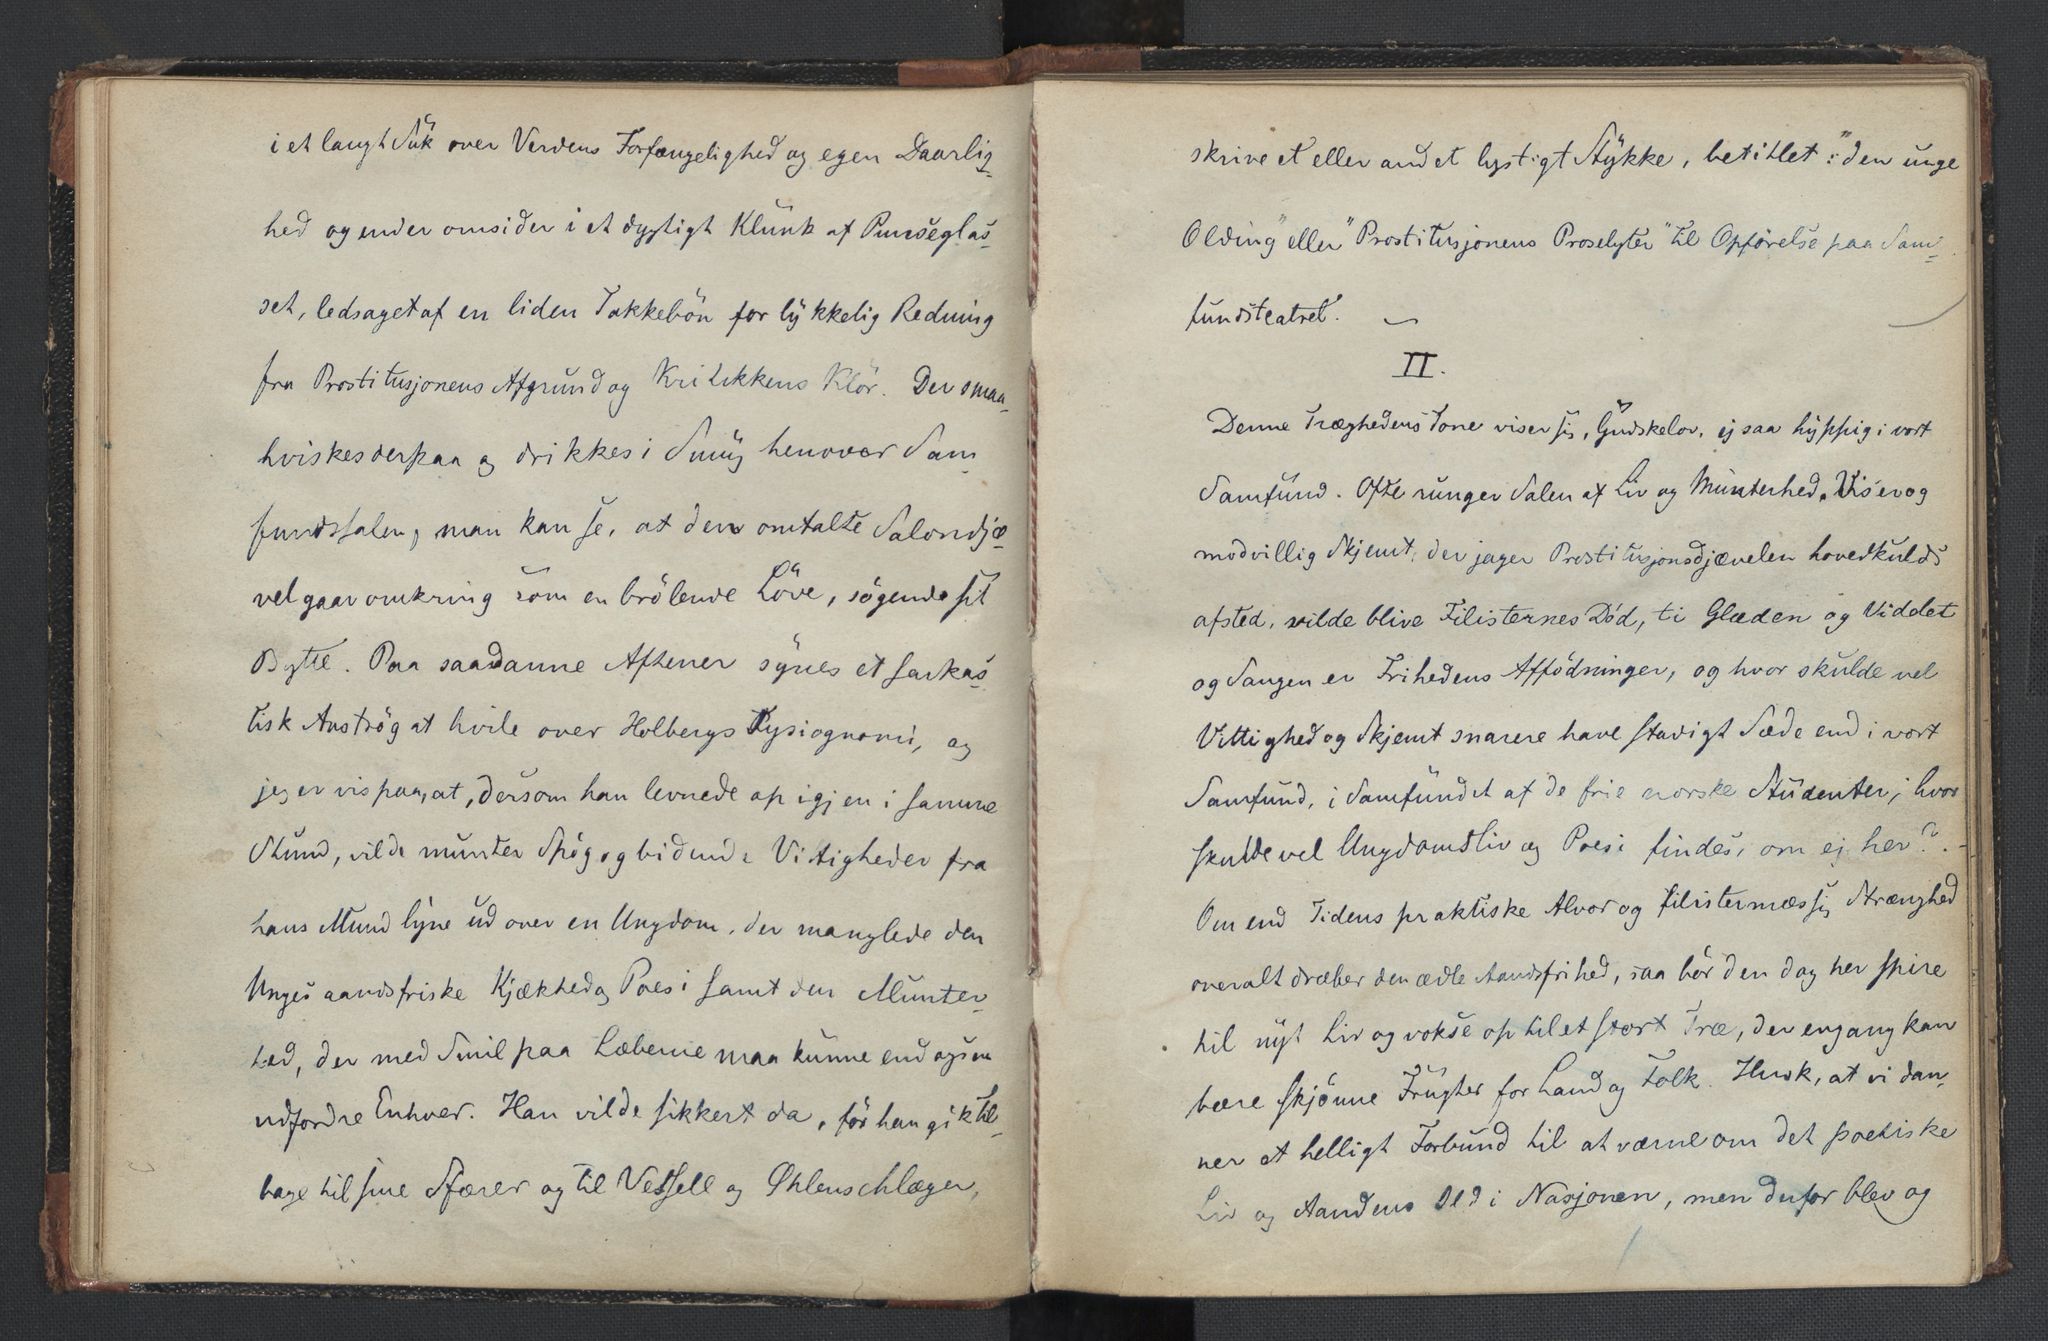 i et langt Suk over Verdens Forfængelighed og egen Daarlig-
hed og ender omsider i et dygtigt Klunk af Punseglas-
set, ledsaget af en liden Takkebön for lykkelig Redning
fra Prostitusjonens Afgrund og Kritikkens Klör. Der smaa-
hviskes derpaa og drikkes i Smug henover Sam-
fundssalen, man kan se, at den omtalte Salondjæ-
vel gaar omkring som en brölende Löve, sögende sit
Bytte. Paa saadanne Aftener synes et sarkas-
tisk Anströg at hvile over Holbergs Fysiognomi, og
jeg er vis paa, at, dersom han levnede op igjen i samme
Stund, vilde munter Spög og bidende Vitigheder fra
hans Mund lyne ud over en Ungdom, der manglede den
Unges aandsfriske Kjækhed og Poesi samt den Munter-
hed, der med Smil paa Læberne maa kunne endogsaa
udfordre Enhver. Han vilde sikkert da, för han gik til-
bage til sine Sfærer og til Vessell og Øhlenschlæger,
skrive et eller andet lystigt Stykke, betitlet: "den unge
Olding" eller "Prostitusjonens Proselyter" til Opförelse paa Sam-
fundsteatret.
II.
Denne Træghedens Tone viser sig, Gudskelov, ej saa hyppig i vort
Samfund. Ofte runger Salen af Liv og Munterhed. Viser og
modvillig Skjemt, der jager Prostitusjonsdjævelen hovedkulds
afsted, vilde blive Filisternes Död, ti Glæden og Viddet
og Sangen er Frihedens Affödninger, og hvor skulde vel
Vittighed og Skjemt snarere have stadigt Sæde end i vort
Samfund, i Samfundet af de frie norske Studenter, hvor
skulde vel Ungdomsliv og Poesi findes, om ej her?. -
Om end Tidens praktiske Alvor og filistermæssig Strænghed
overalt dræber den ædle Aandsfrihed, saa bör den dog her spire
til nyt Liv og vokse op til et stort Træ, der engang kan
bære skjönne Frugter for Land og Folk. Husk, at vi dan-
ner et helligt Forbund til at værne om det poetiske
Liv og Aandens Ild i Nasjonen, men derfor blev og